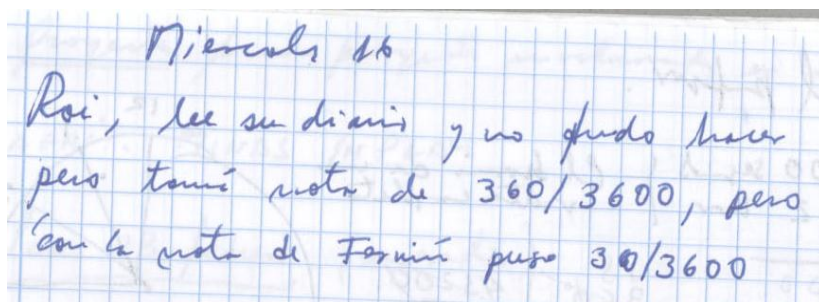 Miercoles 16
Roi, lee su diario y no pudo hacer
pero tomé nota de 360/3600, pero
con la nota de Fermín puso 30/3600